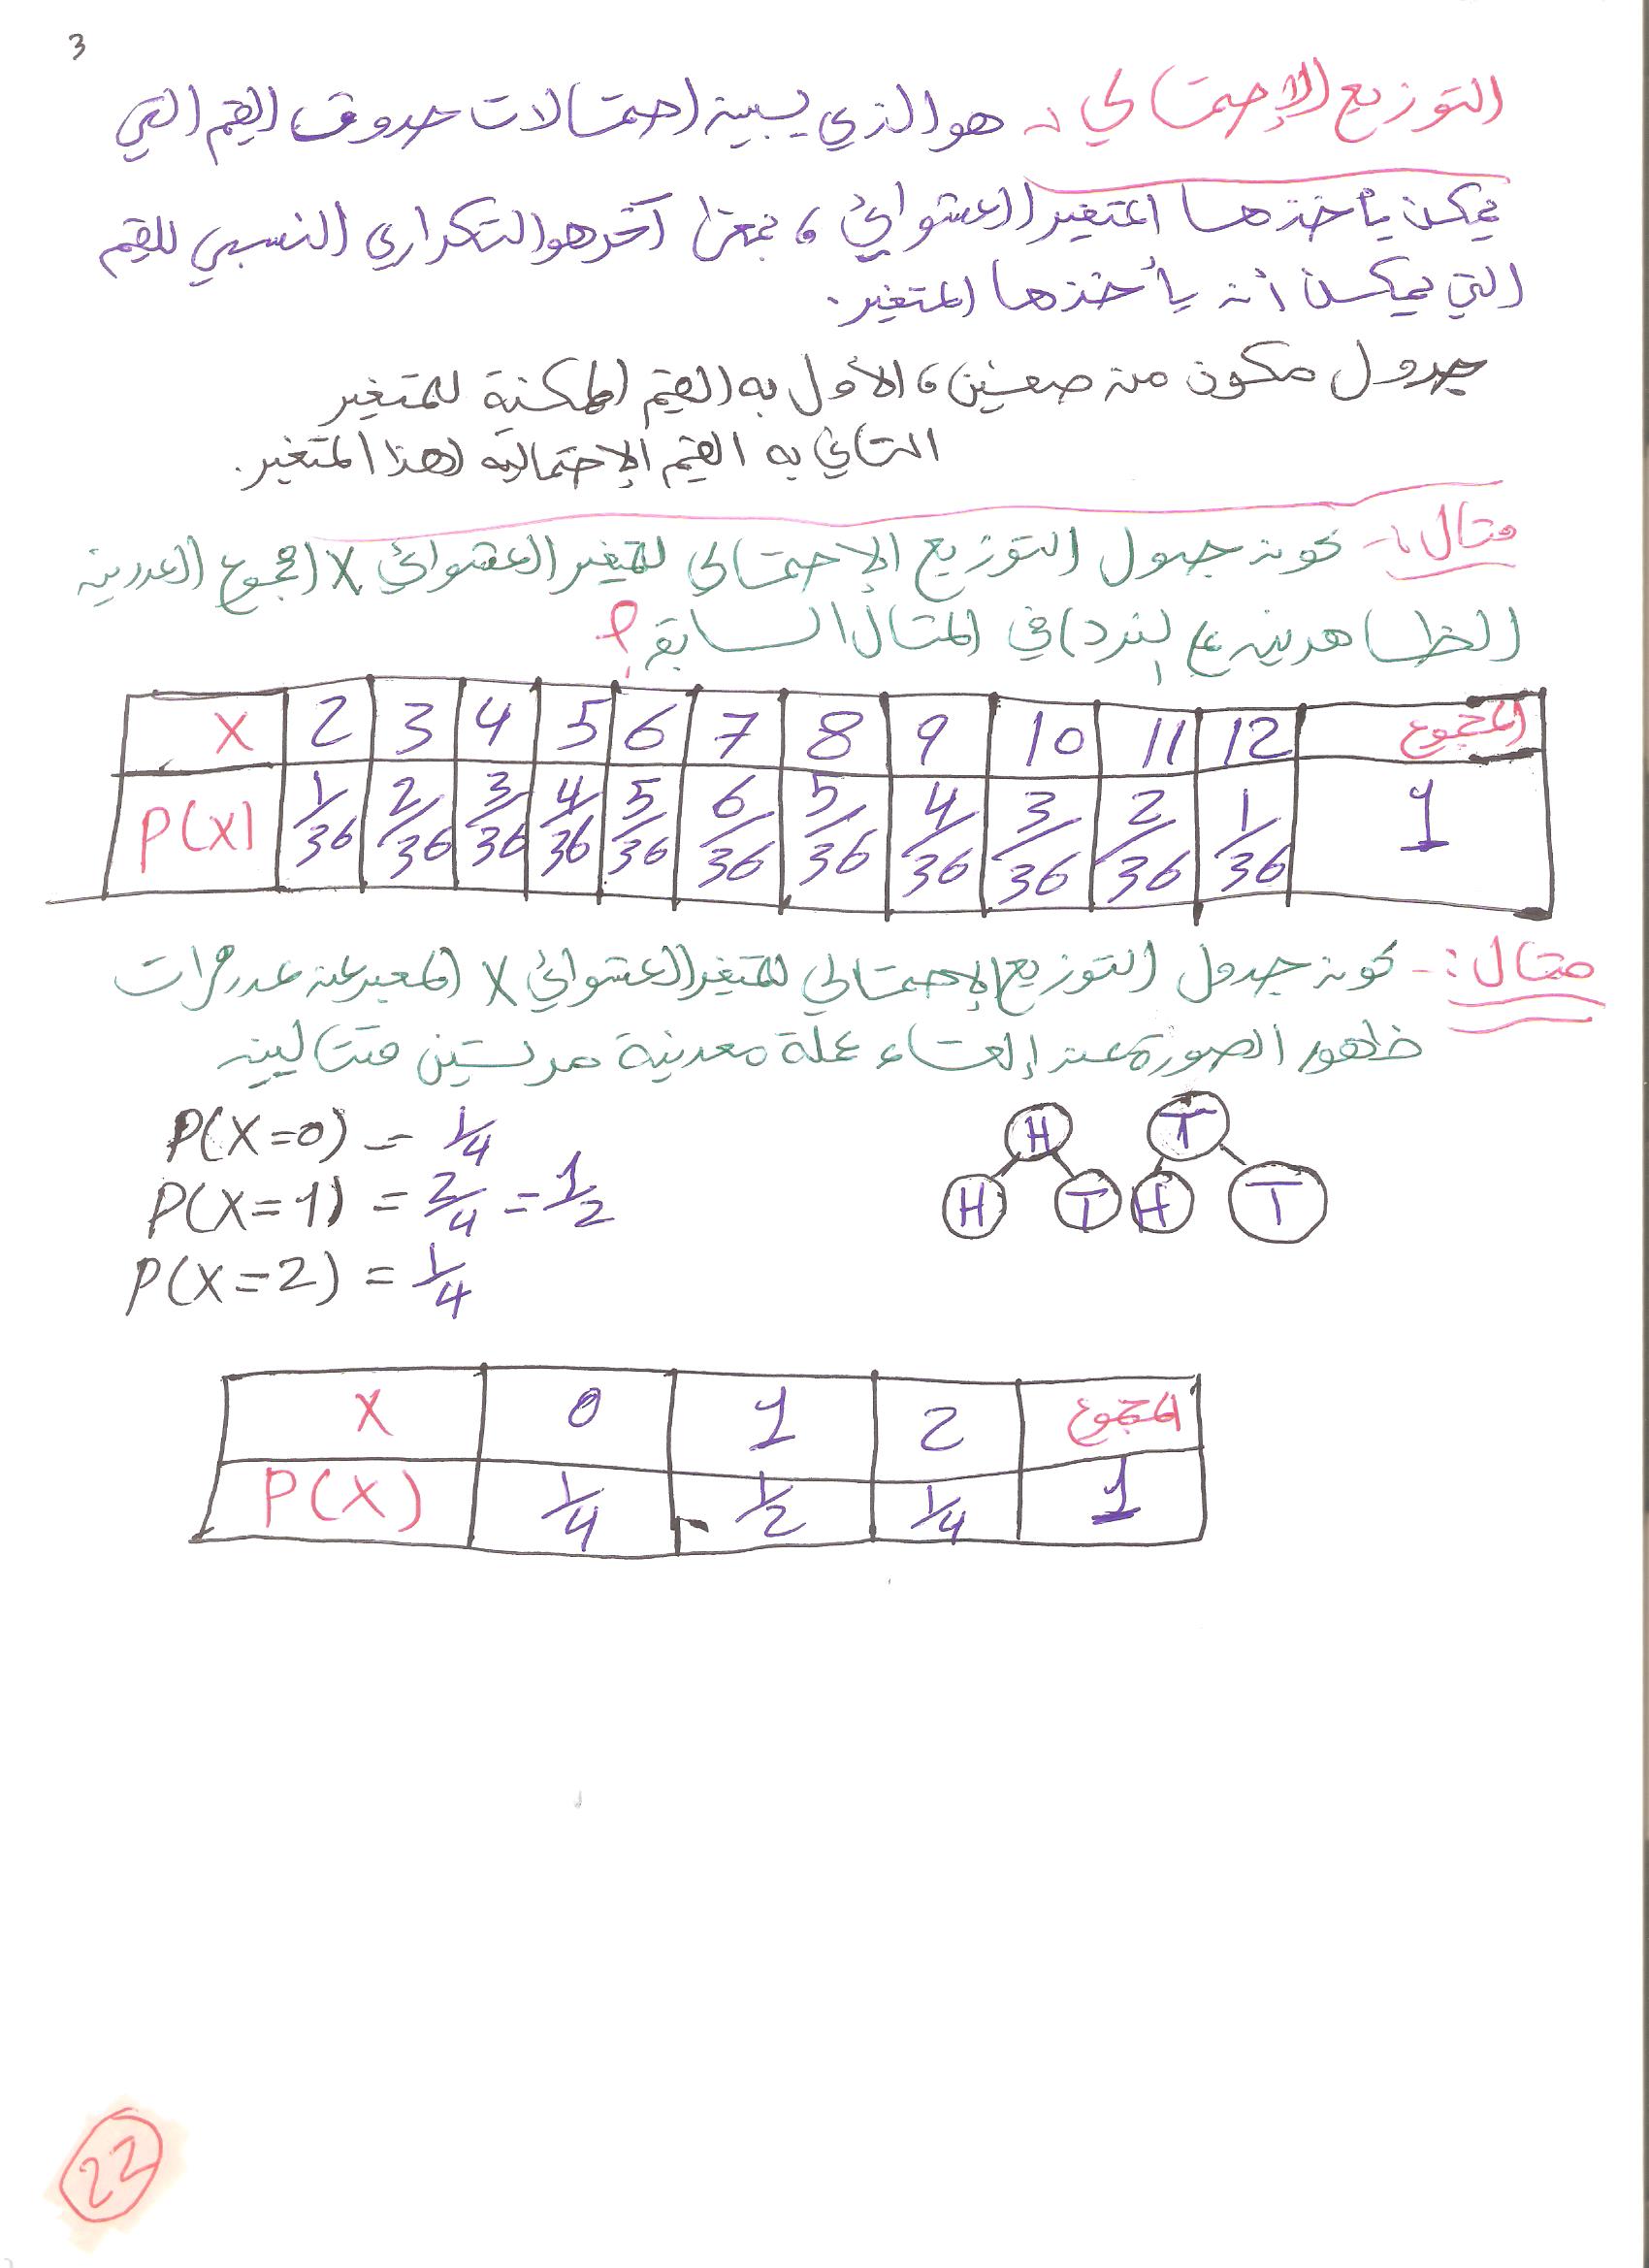 3
التوزيع الإحتمالي :- هو الذي يبين احتمالات حدوث القيم التي
يمكن يأخذها المتغير العشوائي، بمعنى آخر هو التكراري النسبي للقيم
التي يمكن أن يأخذها المتغير.
جدول مكون من صفين، الأول به القيم الممكنة للمتغير
الثاني به القيم الإحتمالية لهذا المتغير.
مثال :- كون جدول التوزيع الإحتمالي للمتغير العشوائي X المجموع العددين
الظاهرين على النرد في المثال السابق؟
X 2 3 4 5 6 7 8 9 10 11 12 المجموع
P(X) 1/36 2/36 3/36 4/36 5/36 6/36 5/36 4/36 3/36 2/36 1/36 1
مثال :- كون جدول التوزيع الإحتمالي للمتغير العشوائي X المعبر عن عدد مرات
ظهور الصورة عند إلقاء عملة معدنية مرتين متتاليين
P(X=0) = 1/4
P(X=1) = 2/4 = 1/2
P(X=2) = 1/4
H T
H T H T
X 0 1 2 المجموع
P(X) 1/4 1/2 1/4 1
22